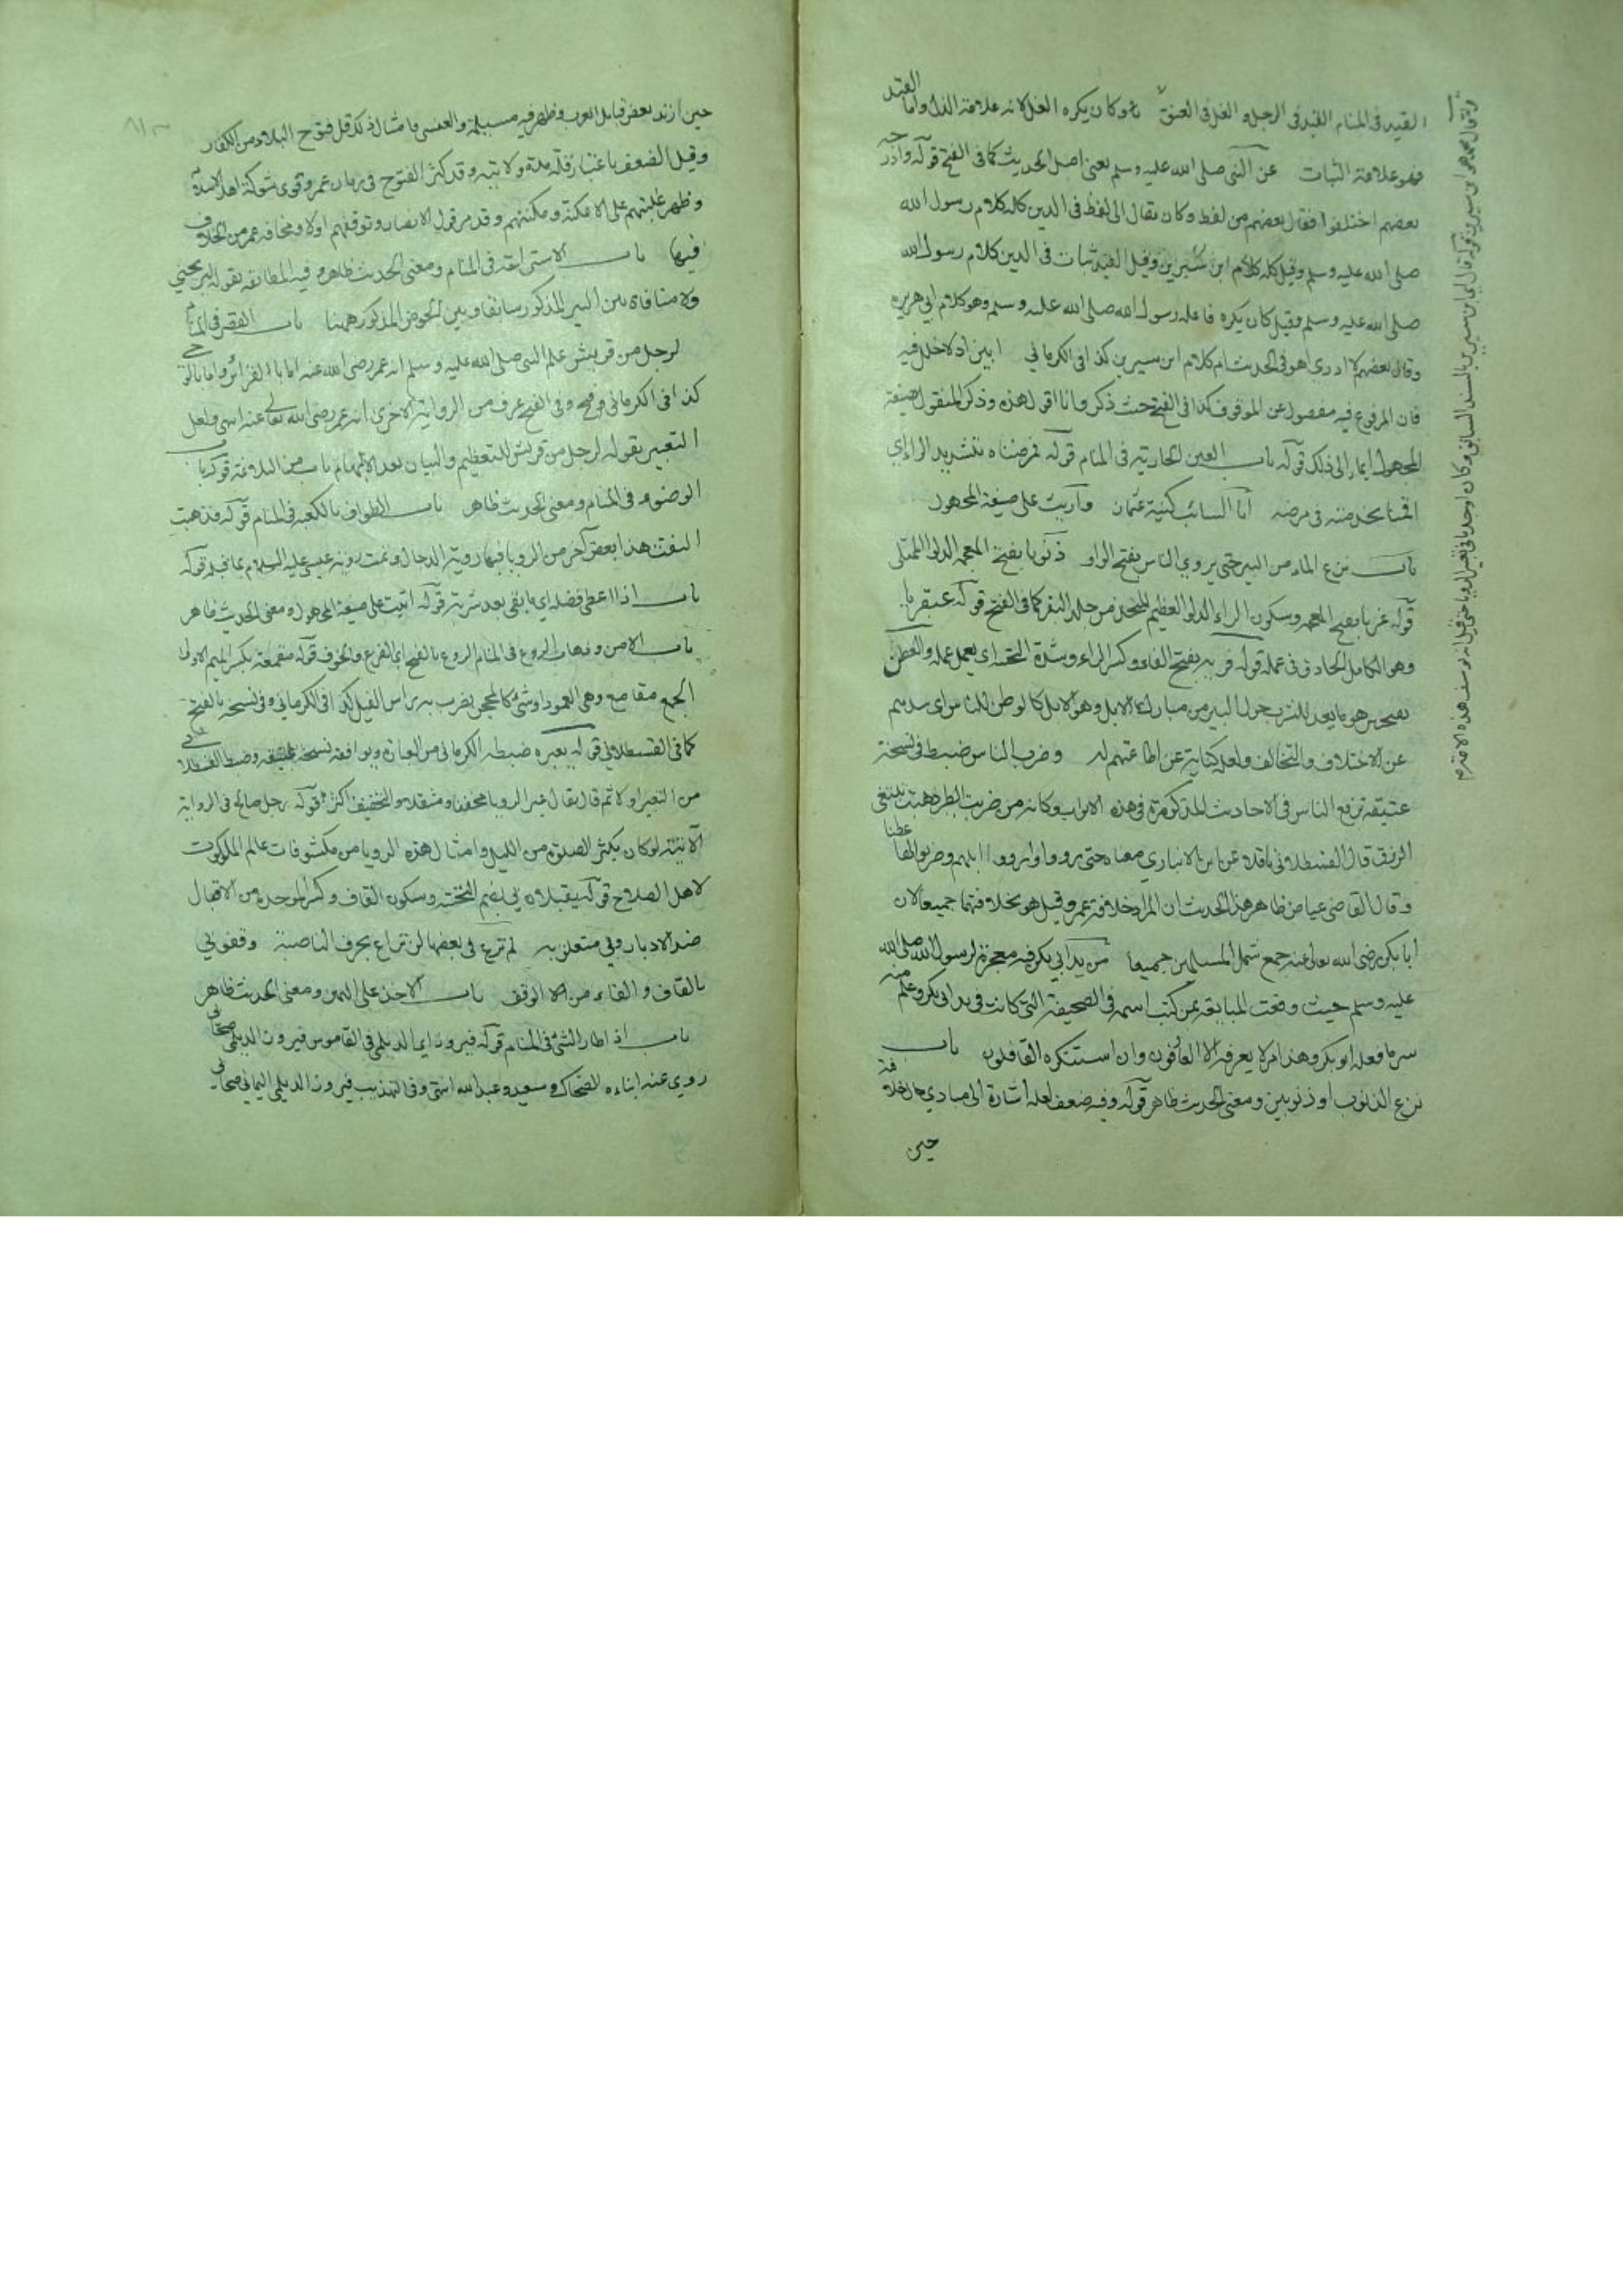 القيد في المنام القيد في الرجل والغل في العنق وكان يكره الغل لانه علامة الذل واما القيد
فهو علامة الثبات عن النبي صلى الله عليه وسلم يعني اصل الحديث كما في الفتح قوله وادرجه
بعضهم اختلفوا فقال بعضهم من لفظ وكان يقال الى لفظ في الدين كله كلام رسول الله
صلى الله عليه وسلم وقيل كله كلام ابن سيرين وقيل القيد ثبات في الدين كلام رسول الله
صلى الله عليه وسلم وقيل كان يكره فاعله رسول الله صلى الله عليه وسلم وهو كلام ابي هريرة
وقال بعضهم لا ادري اهو في الحديث ام كلام ابن سيرين كذا في الكرماني ابين اذ لا خلل فيه
فان المرفوع فيه مفصول عن الموقوف كذا في الفتح حيث ذكر وانا اقول هذه وذكر المنقول بصيغة
المجهول ايماء الى ذلك قوله باب العين الجارية في المنام قوله فمرضناه بتشديد الراء اي
اقمنا بخدمته في مرضه ابا السائب كنية عثمان وأريت على صيغة المجهول
باب نزع الماء من البير حتى يروي الناس بفتح الواو ذنوبا بفتح المعجمه الدلو الممتلي
قوله غربا بفتح المعجمه وسكون الراء الدلو العظيم المتخذ من جلد البقر كما في الفتح قوله عبقريا
وهو الكامل الحاذق في عمله قوله فريه بفتح الفاء وكسر الراء وشدة التحتيه اي يعمل عمله والعطن
بفتحتين هو ما يعد للشرب حول البير من مبارك الابل وهو للابل كالوطن للناس
عن الاختلاف والتخالف ولعله كناية عن اطاعتهم له وضرب الناس ضبط في نسخة
عتيقة برفع الناس في الاحاديث المذكورة في هذه الابواب وكانه من ضربت الطير ذهبت تبتغي
الرزق قال القسطلاني ناقلا عن ابن الانباري معناه حتى رووا وارووا ابلهم وضربوا لها عطنا
وقال القاضي عياض ظاهر هذا الحديث ان المراد خلافة عمر وقيل هو بخلافتهما جميعا لان
ابا بكر رضي الله تعالى عنه جمع شمل المسلمين جميعا من يد ابي بكر فيه معجزة لرسول الله صلى الله
عليه وسلم حيث وقعت المبايعة بمن كتب اسمه في الصحيفة التي كانت في يد ابي بكر وعلم منه
سر ما فعله ابو بكر وهذا امر لا يعرفه الا العارفون وان استنكره الغافلون باب
نزع الذنوب او ذنوبين ومعنى الحديث ظاهر قوله وفيه ضعف لعله اشارة الى مبادي حال خلافته
حين
حين ارتد بعض قبايل العرب وظهر فيه مسيلمة والعنسي وامثال ذلك قبل فتوح البلاد من الكفار
وقيل الضعف باعتبار قلة مدة ولايته وقد كثر الفتوح في زمان عمر وقوي شوكة اهل الاسلام
وظهر غلبتهم على الامكنة ومكنتهم وقد مر قول الانصار وتوقفهم اولا ومخافة عمر من الخلاف
فيها باب الاستراحة في المنام ومعنى الحديث ظاهر وفيه المطابقة بقوله ليريحني
ولا منافاة بين البير المذكور سابقا وبين الحوض المذكور ههنا باب القصر في المنام
لرجل من قريش علم النبي صلى الله عليه وسلم انه عمر رضي الله عنه اما بالقرائن واما بالوحي
كذا في الكرماني وفي الفتح عرف من الرواية الاخرى انه عمر رضي الله تعالى عنه انتهى ولعل
التعبير بقوله لرجل من قريش للتعظيم والبيان بعد الابهام باب
الوضوء في المنام ومعنى الحديث ظاهر باب الطواف بالكعبة في المنام قوله فذهبت
التفت هذا بعض آخر من الرويا فيها روية الدجال وتمت روية عيسى عليه السلام بما قبله قوله
باب اذا اعطى فضله اي ما بقي بعد شربه قوله اتيت على صيغة المجهول ومعنى الحديث ظاهر
باب الامن وذهاب الروع في المنام الروع بالفتح اي الفزع والخوف قوله مقمعة بكسر الميم الاولى
الجمع مقامع وهي العمود او شئ كالمحجن يضرب به راس الفيل كذا في الكرماني وفي نسخة بالفتح
كما في القسطلاني قوله يعبره ضبطه الكرماني من العبارة ويوافقه نسخة عتيقة وضبط القسطلاني
من التعبير اولا ثم قال يقال عبر الرويا مخففا ومثقلا والتخفيف اكثر قوله رجل صالح في الرواية
الآتية لو كان يكثر الصلوة من الليل وامثال هذه الرويا من مكشوفات عالم الملكوت
لاهل الصلاح قوله يقبلان بي بضم التحتية وسكون القاف وكسر الموحدة من الاقبال
ضد الادبار وبي متعلق به لم ترع في بعضها لن تراع بحرف الناصبة وقفوني
بالقاف والفاء من الوقف باب الاخذ على اليمين ومعنى الحديث ظاهر
باب اذا طار الشئ في المنام قوله فيروز ايما الديلمي في القاموس فيروز الديلمي صحابي
روي عنه ابناءه الضحاك وسعيد وعبد الله انتهى وفي التهذيب فيروز الديلمي اليماني صحابي